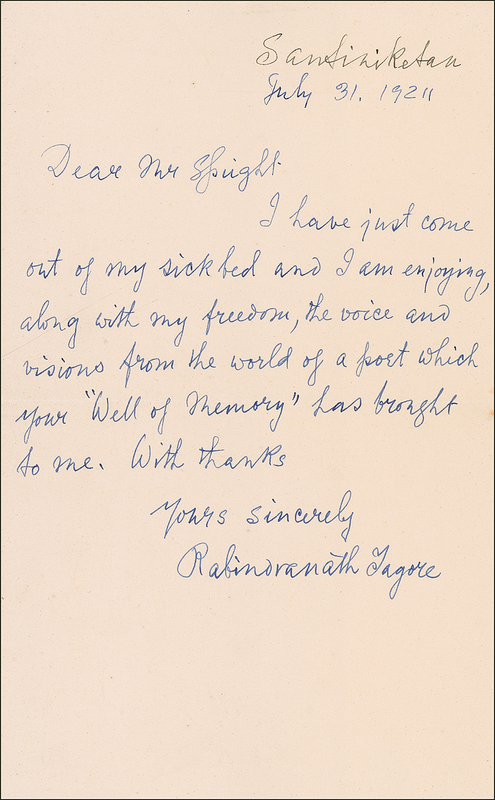 Santiniketan
July 31. 1921
Dear Mr Speight
I have just come
out of my sick bed and I am enjoying,
along with my freedom, the voice and
visions from the world of a poet which
your "Well of Memory" has brought
to me. With thanks
Yours sincerely
Rabindranath Tagore